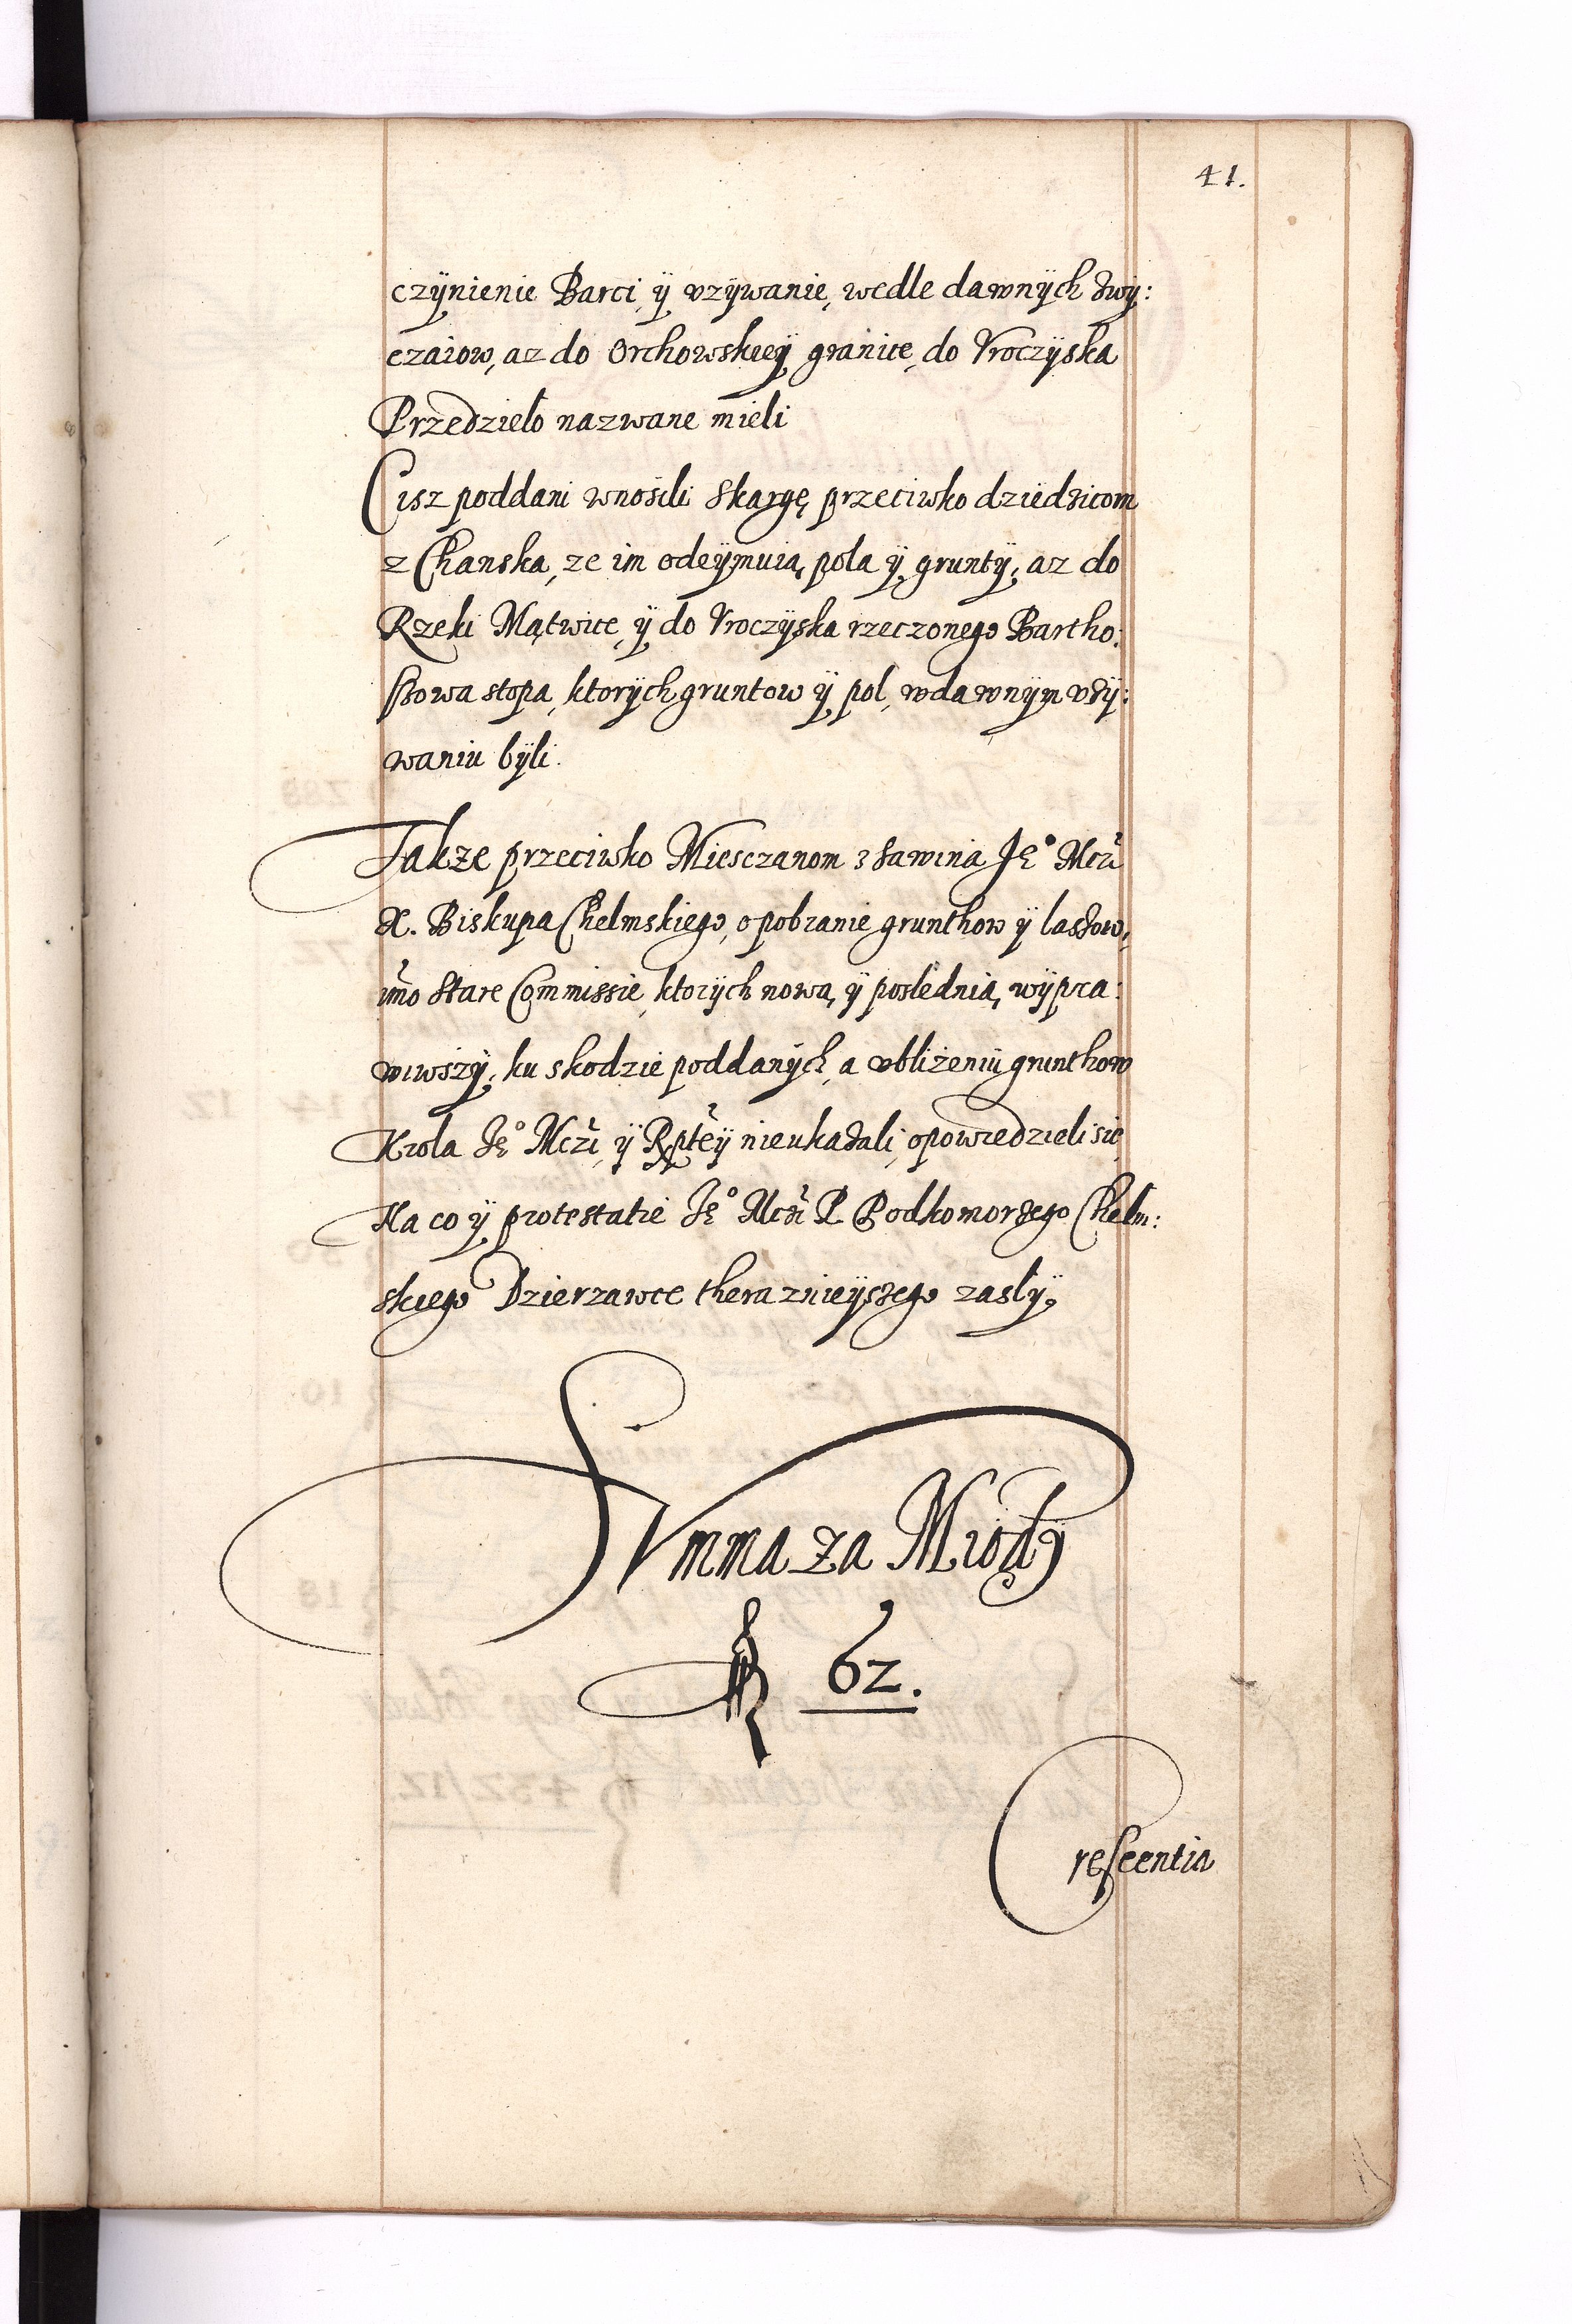 41.
czÿnienie Barci, ÿ vzÿwanie, wedle dawnÿch zwÿ:
czaiow, az do Orchowskieÿ granice, do Vroczÿska
Przedzielo nazwane mieli
Cisz poddani wnosili skargę przeciwko dziedzicom
z Chanska, ze im odeÿmuią pola ÿ gruntÿ, az do
Rzeki Mątwice, ÿ do Vroczÿska rzeczonego Bartho:
szowa stopa, ktorÿch gruntow ÿ pol, wdawnÿm vzÿ:
waniu bÿli.
Takze przeciwko Miesczanom z Sawina Je° Mczi
X. Biskupa Chelmskiego, o pobranie grunthow ÿ lassow,
imo stare Commissie, ktorÿch nową ÿ poslednią wÿpra:
wiwszÿ, ku skodzie poddanÿch, a vbliżeniu grunthow
Krola Je° Mczi, ÿ Rpteÿ nieukazali, opowiedzieli się,
Na co ÿ protestatie Je° Mczi P. Podkomorzego Chelm:
skiego Dzierzawce theraznieÿszego zaslÿ.
Summa za Miodÿ
fl 62.
Crescentia